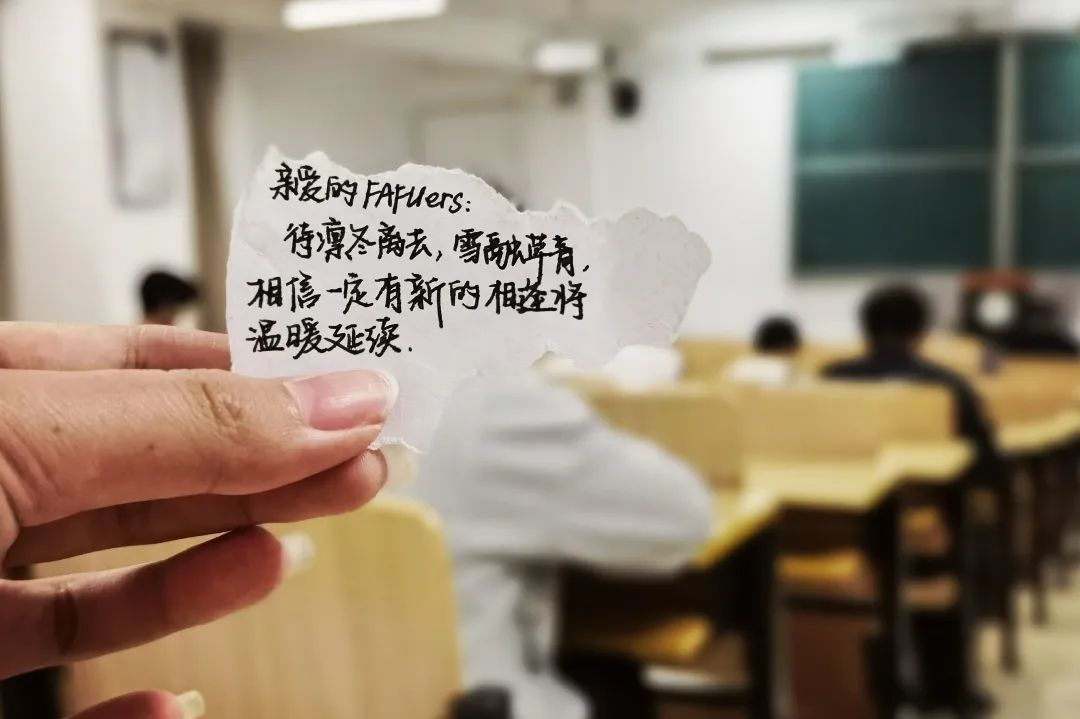 亲爱的FAFUers:
待凛冬离去,雪融草青,
相信一定有新的相逢将
温暖延续.